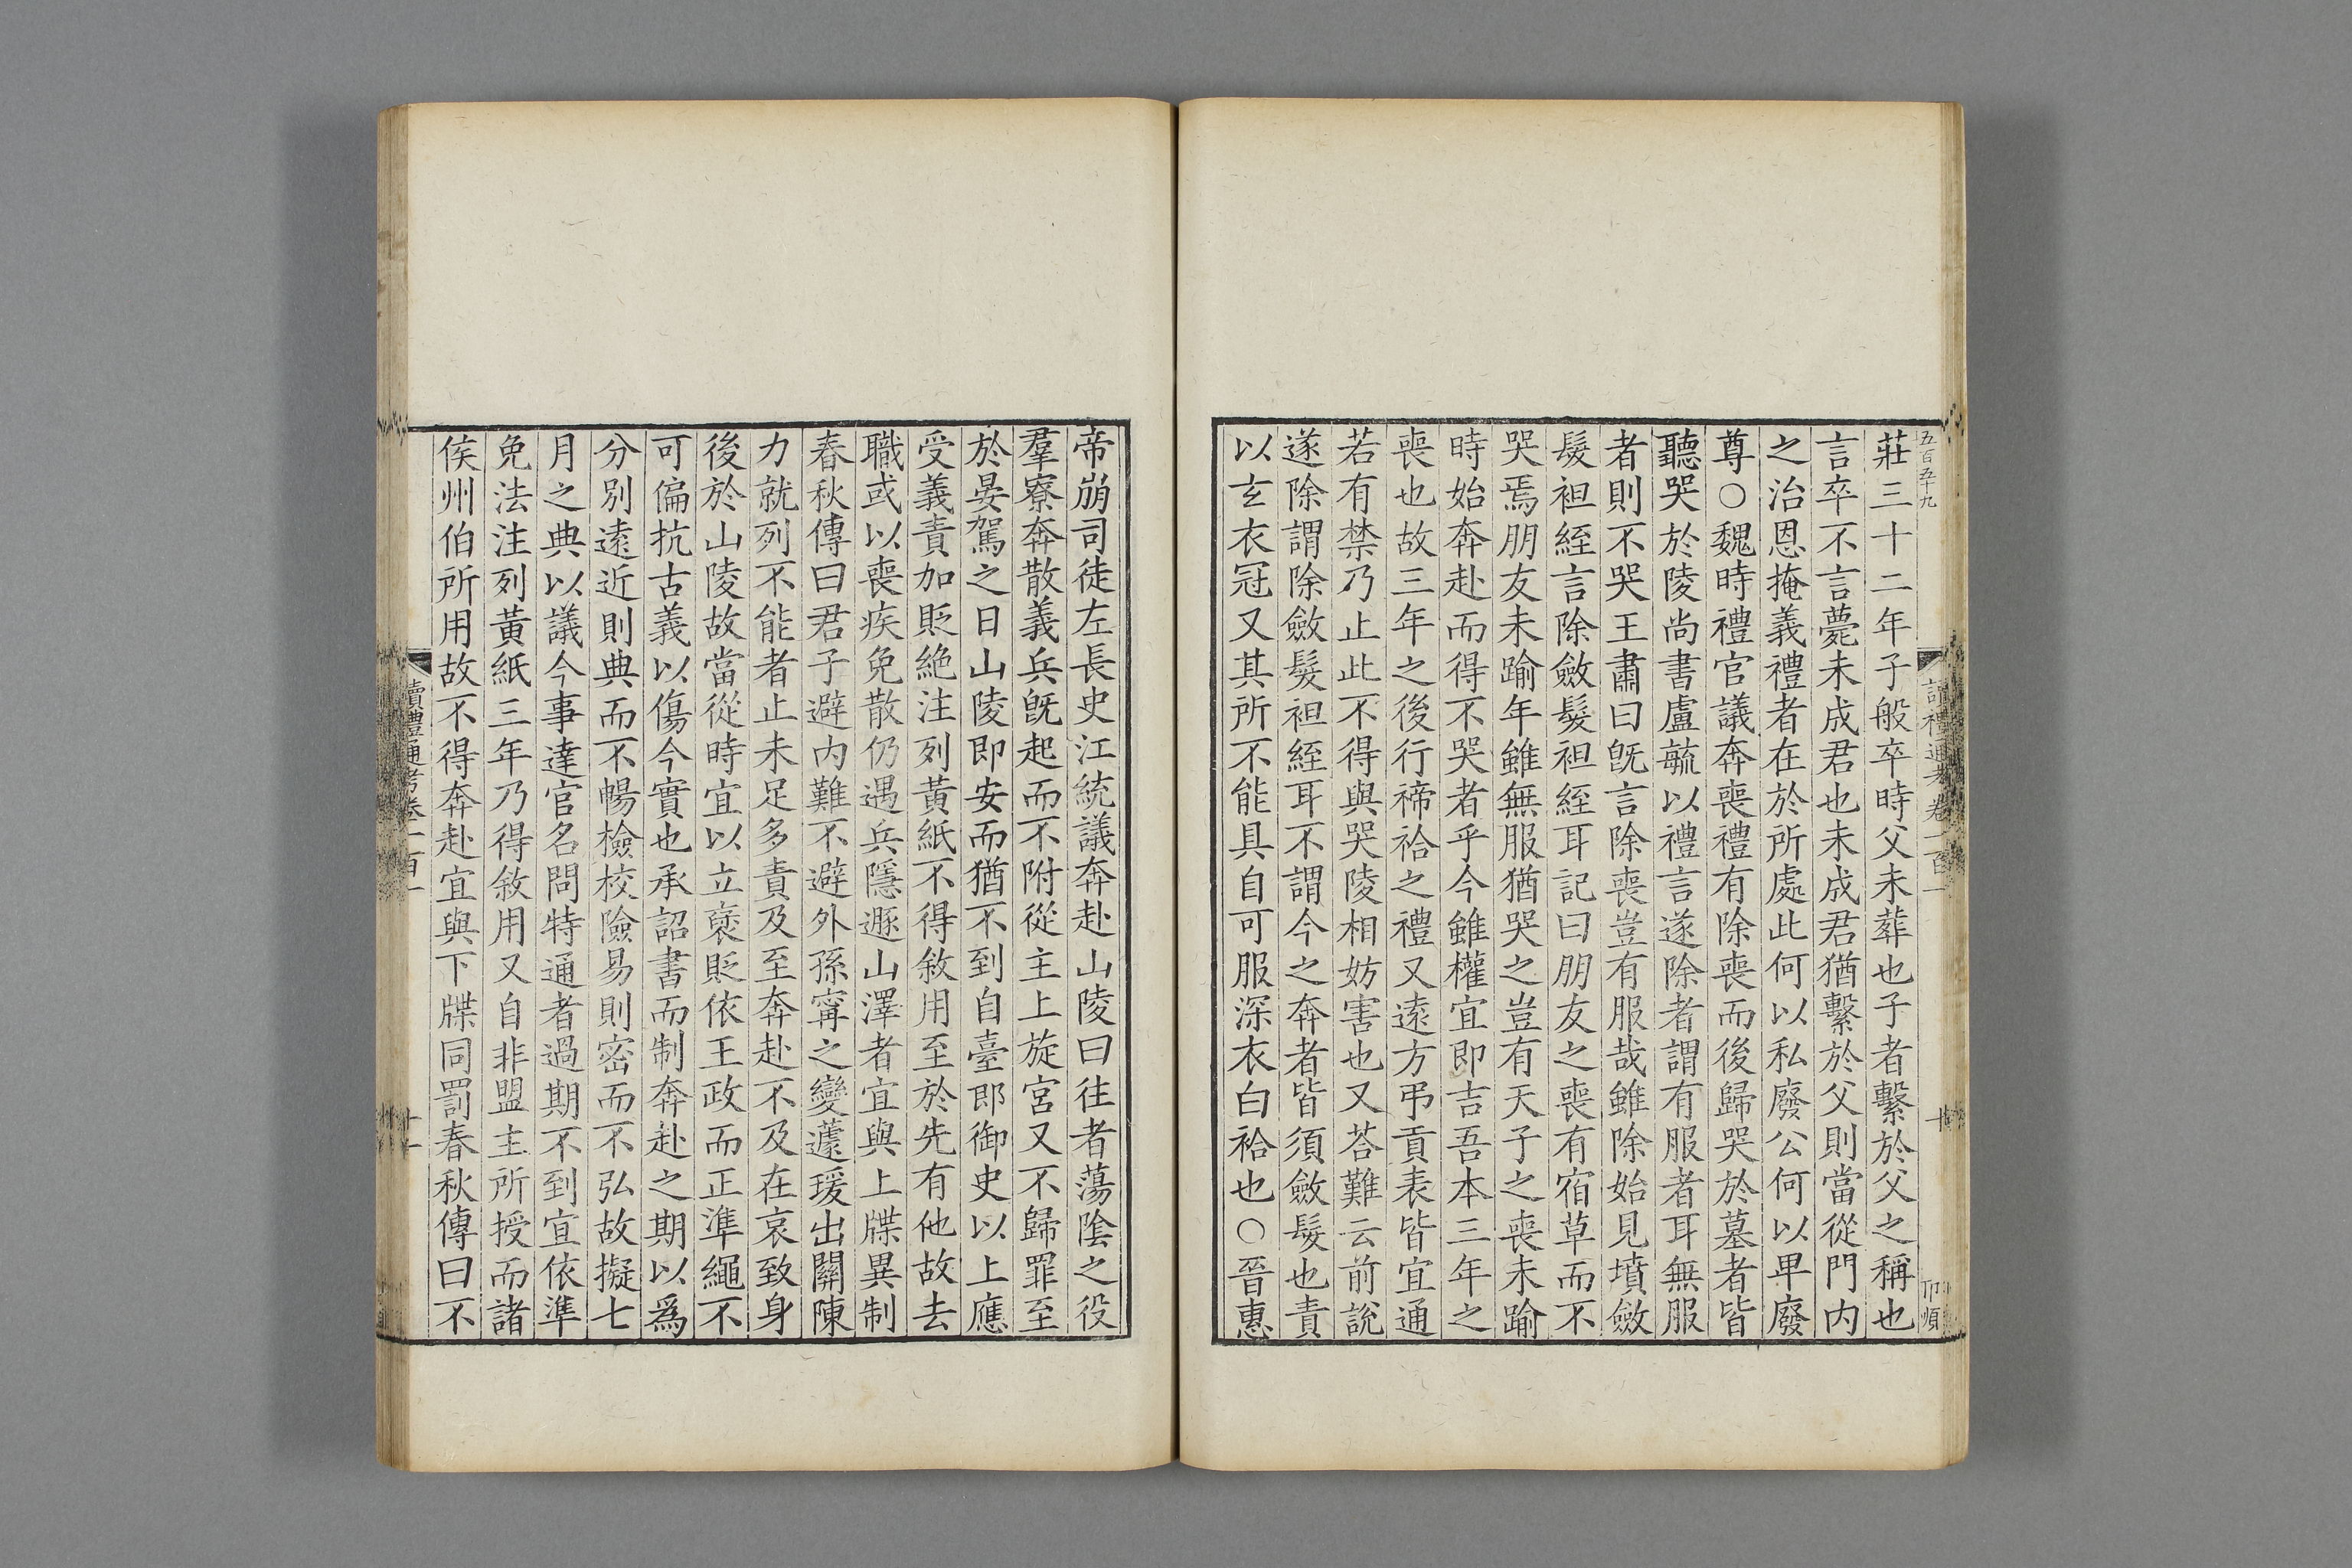 五百五十九
讀禮通考卷一百一
十
莊三十二年子般卒時父未葬也子者繫於父之稱也
言卒不言薨未成君也未成君猶繫於父則當從門内
之治恩掩義禮者在於所處此何以私廢公何以卑廢
尊○魏時禮官議奔喪禮有除喪而後歸哭於墓者皆
聽哭於陵尚書盧毓以禮言遂除者謂有服者耳無服
者則不哭王肅曰旣言除喪豈有服哉雖除始見墳斂
髮袒絰言除斂髮袒絰耳記曰朋友之喪有宿草而不
哭焉朋友未踰年雖無服猶哭之豈有天子之喪未踰
時始奔赴而得不哭者乎今雖權宜即吉吾本三年之
喪也故三年之後行禘祫之禮又遠方弔貢表皆宜通
若有禁乃止此不得與哭陵相妨害也又荅難云前説
遂除謂除斂髮袒絰耳不謂今之奔者皆須斂髮也責
以玄衣冠又其所不能具自可服深衣白袷也○晉惠
帝崩司徒左長史江統議奔赴山陵曰往者蕩陰之役
羣寮奔散義兵旣起而不附從主上旋宮又不歸罪至
於晏駕之日山陵即安而猶不到自臺郎御史以上應
受義責加貶絶注列黃紙不得敘用至於先有他故去
職或以喪疾免散仍遇兵隱遯山澤者宜與上牒異制
春秋傳曰君子避内難不避外孫甯之變蘧瑗出關陳
力就列不能者止未足多責及至奔赴不及在哀致身
後於山陵故當從時宜以立襃貶依王政而正準繩不
可偏抗古義以傷今實也承詔書而制奔赴之期以爲
分别遠近則典而不暢檢校險易則密而不弘故擬七
月之典以議今事達官名問特通者過期不到宜依準
免法注列黃紙三年乃得敘用又自非盟主所授而諸
侯州伯所用故不得奔赴宜與下牒同罰春秋傳曰不
讀禮通考卷一百一
十一